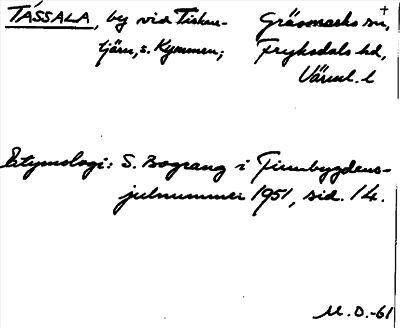 TÁSSALA, by vid Tisken-
tjärn, s. Kymmen;
Gräsmarks sn,
Fryksdals hd,
Värml. l
Etymologi: S. Bograng i Finnbygdens-
julnummer 1951, sid. 14.
M.O.-61